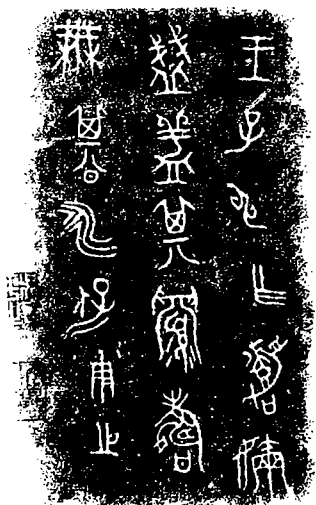 王子申乍嘉嬭
盞盂其眉壽
無期永保用之